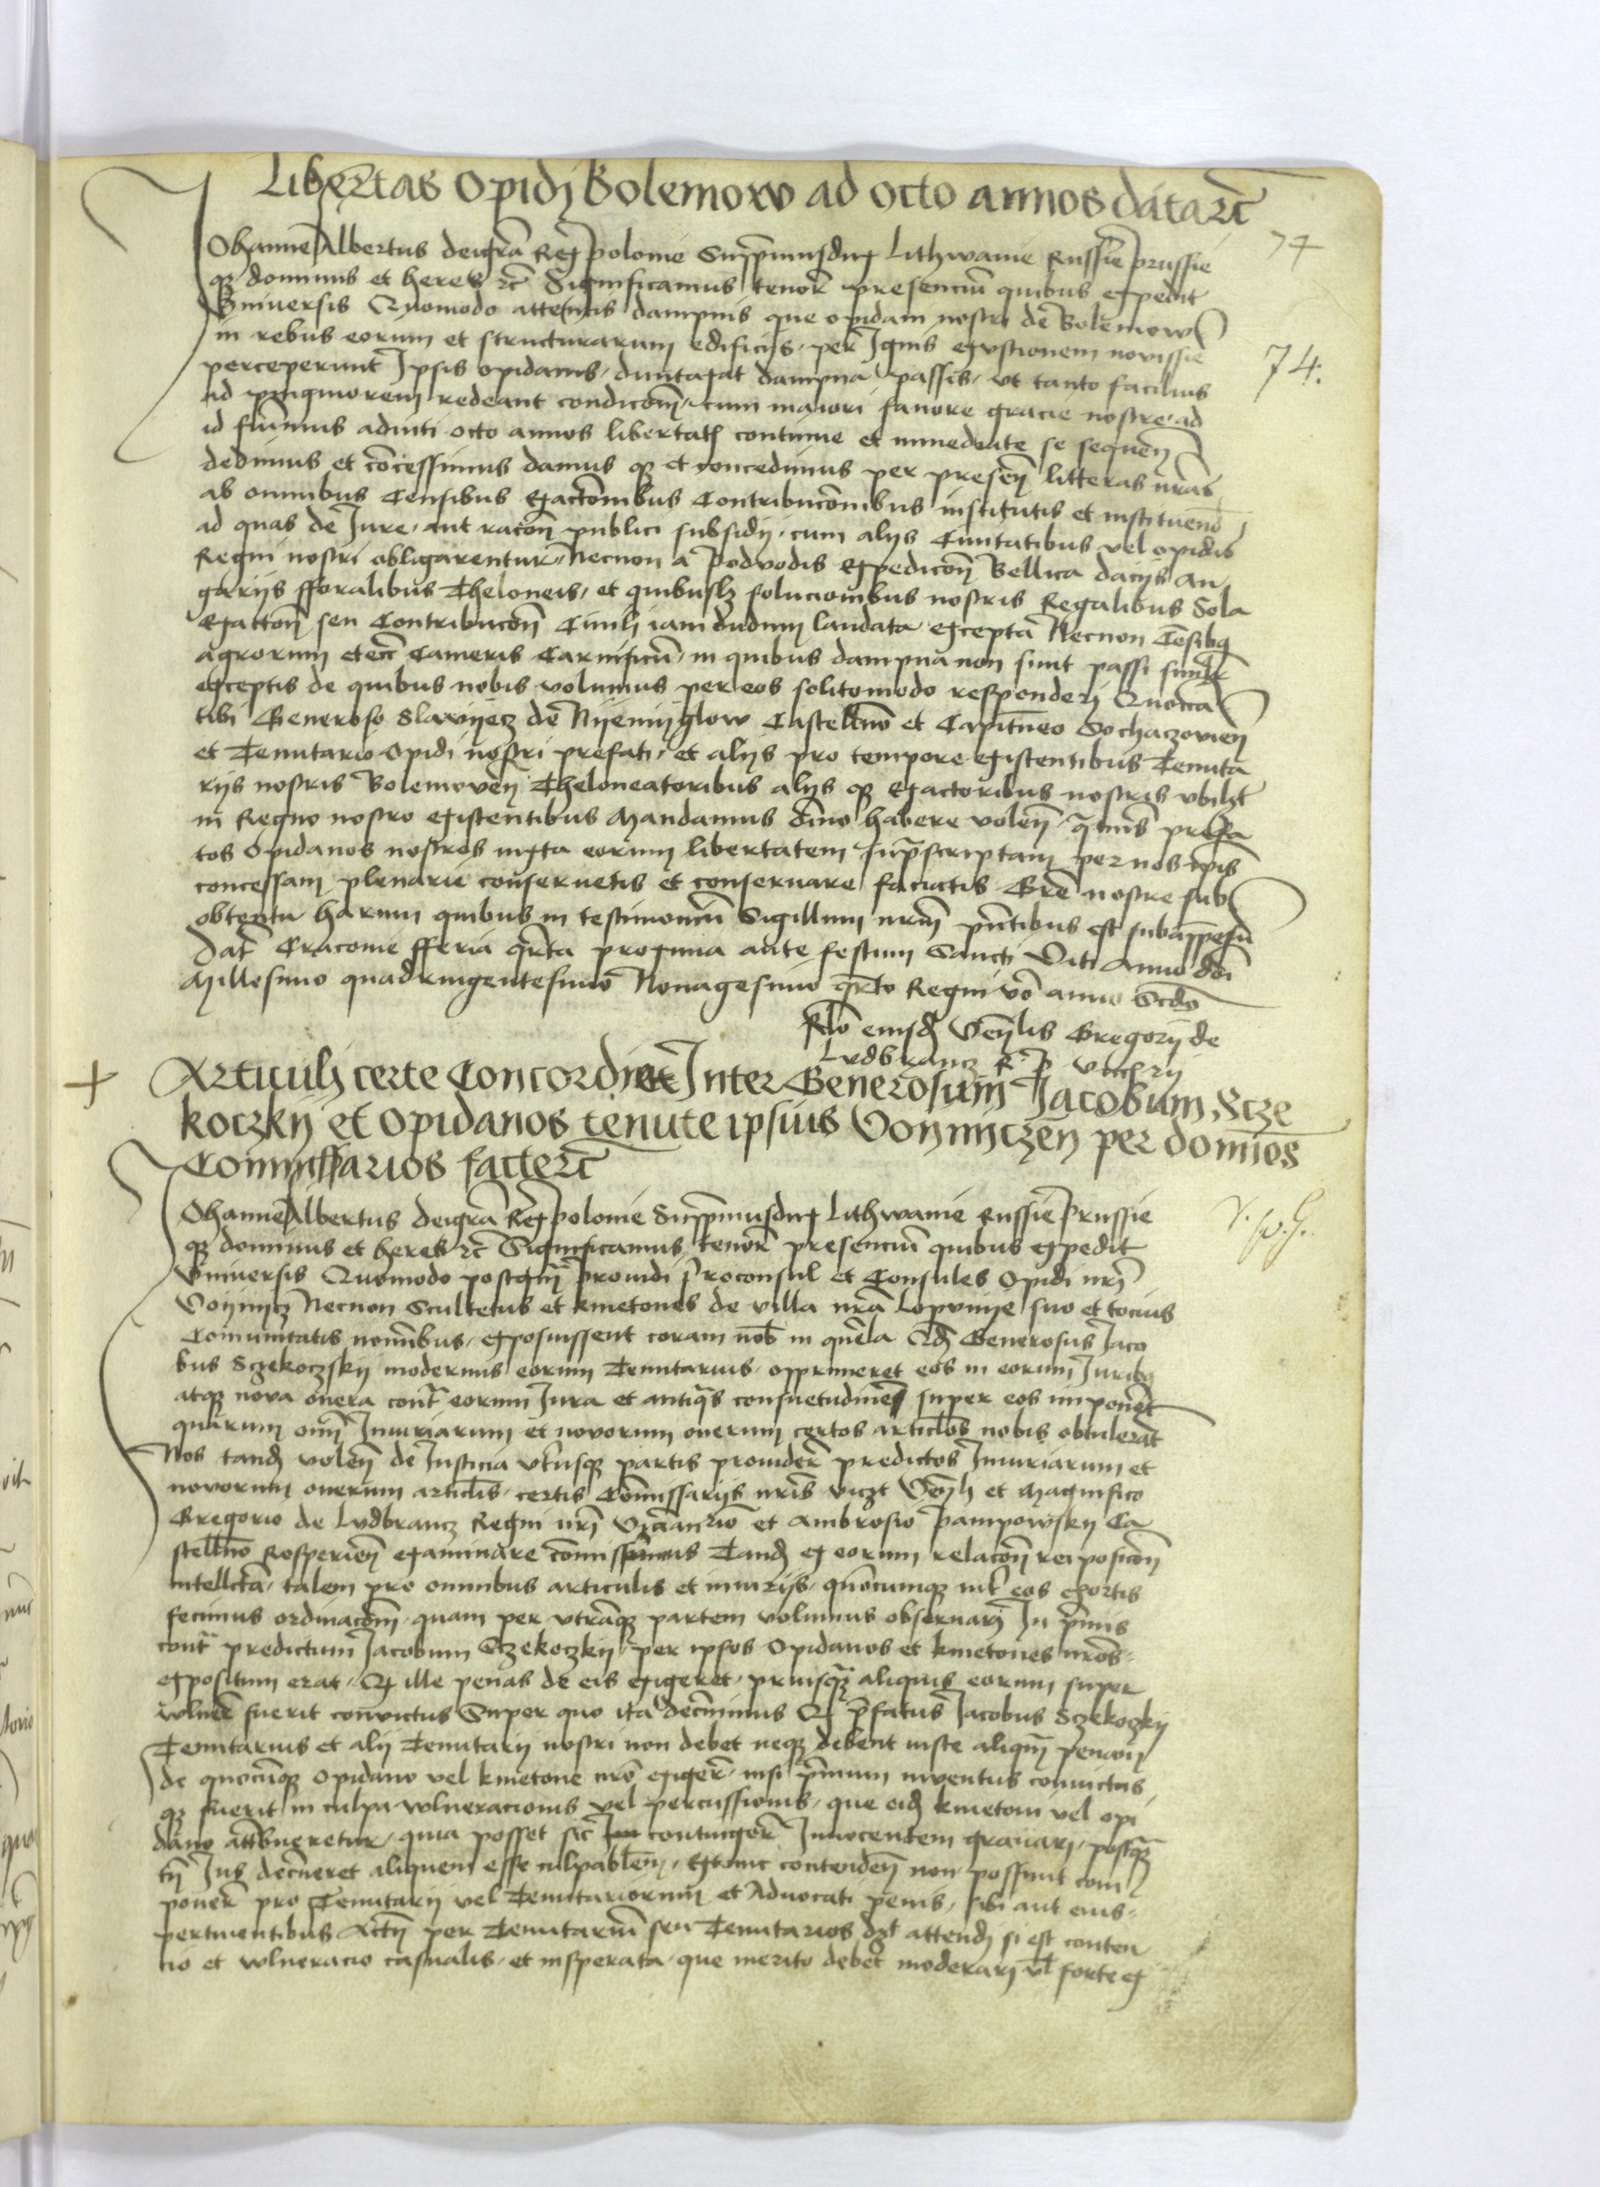 Libertas Opidj Bolemow ad octo annos data rc̄
74
Johannes Albertus dei gr̄a Rex polonie Sup̄mus dux Lithwanie Russie prussie
qȝ dominus et heres rc̄ Significamus tenor̄ presenciū quibus expedit
Vniversis Quomodo attentis dampnis que opidani nostri de Bolemow
in rebus eorum et structurarum edificijs per Ignis exustionem novissie
74.
perceperunt Ipsis opidanis duntaxat dampna passis vt tanto facilius
ad pinguiorem redeant condicōem cum maiori favore gracie nostre ad
id octo annos libertatis continue et immediate se sequen̄
dedimus et cōcessimus damus qȝ et concedimus per presen̄ litteras nr̄as
ab omnibus Censibus Exactōnibus Contribucōnibus institutis et instituend̄
ad quas de Jure aut racōn̄ publici subsidij cum alijs Civitatibus vel opidis
Regni nostri obligarentur Necnon a podvodis Expedicōn̄ Bellica dacijs an
garijs fforalibus Theloneis et quibuslȝ solucionibus nostris Regalibus Sola
Exaccōn̄ seu Contribucōn̄ Civili iamdudum laudata excepta Necnon Cēsibȝ
agrorum et Cameris Carnificū in quibus dampna non sunt passi
exceptis de quibus nobis volumus per eos solitomodo responderj Quocca
tibi Generoso Slawyecz de Nyemyglow Castellano et Capitaneo Sochaczovien̄
et Tenutario opidi nostri prefati et alijs pro tempore existentibus Tenuta
rijs nostris Bolemovien̄ Theloneatoribus alijs qȝ Exactoribus nostris vbilȝt
in Regno nostro existentibus Mandamus om̄ino habere volen̄ q̄tinus prefa
tos Opidanos nostros iuxta eorum libertatem sup̄scriptam per nos ip̄is
concessam plenarie conservetis et conservare faciatis Gr̄e nostre sub
obtentu harum quibus in testimoniū Sigillum nr̄m pn̄tibus est subapp̄ensū
Dat̄ Cracovie fferia q̄rta proxima ante festum Sancti Viti Anno dn̄i
Millesimo quadringentesimo Nonagesimo q̄rto Regni v̄o anno Scdō
Rlō eiusdē Ven̄lis Gregorij de
Ludbrancz R. P. vicecn̄rij
+ Articulj certe Concordie Inter Generosum Jacobum Scze
koczkij et Opidanos tenute ipsius Voyniczen̄ per domīos
Commissarios facte rc̄
Johannes Albertus dei gr̄a Rex polonie Sup̄mus dux Lithwanie Russie prussie
qȝ dominus et heres rc̄ Significamus tenor̄ presenciū quibus expedit
Vniversis Quomodo postq̄m providi proconsul et Consules Opidi nr̄i
Voynycz Necnon Scultetus et kmetones de villa nr̄a Lopvnye suo et tocius
Comunitatis nominibus exposuissent coram nob̄ in quer̄ela Qd̄ Generosus Jaco
bus Sczekoczskij modernus eorum Tenutarius opprimeret eos in eorum Juribȝ
atqȝ nova onera cont̄ eorum Jura et antiq̄s consuetudines super eos imponēt
quarum om̄i Iniuriarum et novorum onerum certos articlōs nobis obtulerāt
Nos tandē volen̄ de Justicia vtriusqȝ partis providerē predictos Iniuriarum et
novorum onerum articlis certis Cōmissarijs nr̄is viczt Ven̄li et Magnifico
Gregorio de Lvdbrancz Regni nr̄i Vicecancrīo et Ambrosio Pampowskij Ca
stellano Rosperien̄ examinare cōmisimus Tandē ex eorum relacōn̄ rei posicōn̄
intellcta talem pro omnibus articulis et iniurijs quōcumqȝ int̄ eos exortis
fecimus ordinacōm quam per vtrāqȝ partem volumus observarj In p̄mis
cont̄ predictum Jacobum Sczekoczkij per ipsos Opidanos et kmetones nr̄os
expositum erat Qd̄ ille penas de eis exigeret priusq̄ aliquis eorum super
vulner̄ fuerit convictus Super quo ita decernimus Qd̄ p̄fatus Jacobus Sczekoczkij
Tenutarius et alij Tenutarij nostri non debet neqȝ debent iuste aliq̄m penam
de quocūqȝ Opidano vel kmetone nr̄o exiger̄ nisi p̄mum inventus convictus
qȝ fuerit in culpa vulneracionis vel percussionis que eidē kmetoni vel opi
dano attribueretur quia posset sic contingerē Innocentem gravari postq̄
Jus decerneret aliquem esse culpabilem Extunc contenden̄ non possunt com
ponere pro Tenutarij vel Tenutariorum et Advocati penis sibi aut eius
pertinentibus per Tenutariū seu Tenutarios dȝt attendj si est conten
cio et vulneracio casualis et insperata que merito debet moderarj vl̄ forte ex